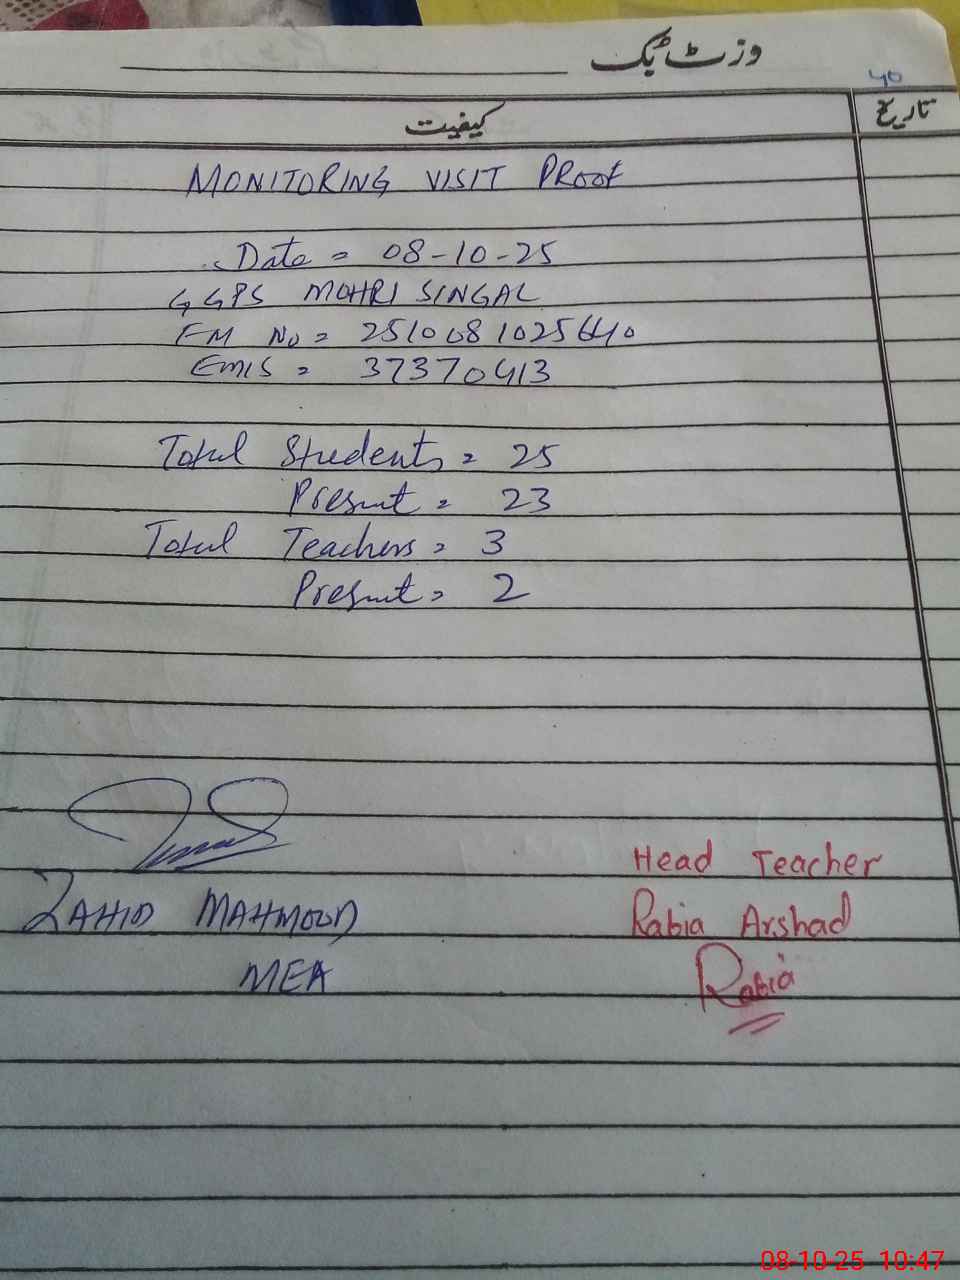 وزٹ بک
40
کیفیت
تاریخ
MONITORING VISIT PROOF
Date = 08-10-25
GGPS MOHRI SINGAL
FM No = 2510081025640
EMIS = 37370413
Total Students = 25
Present = 23
Total Teachers = 3
Present = 2
ZAHID MAHMOOD
MEA
Head Teacher
Rabia Arshad
Rabia
08-10-25 10:47